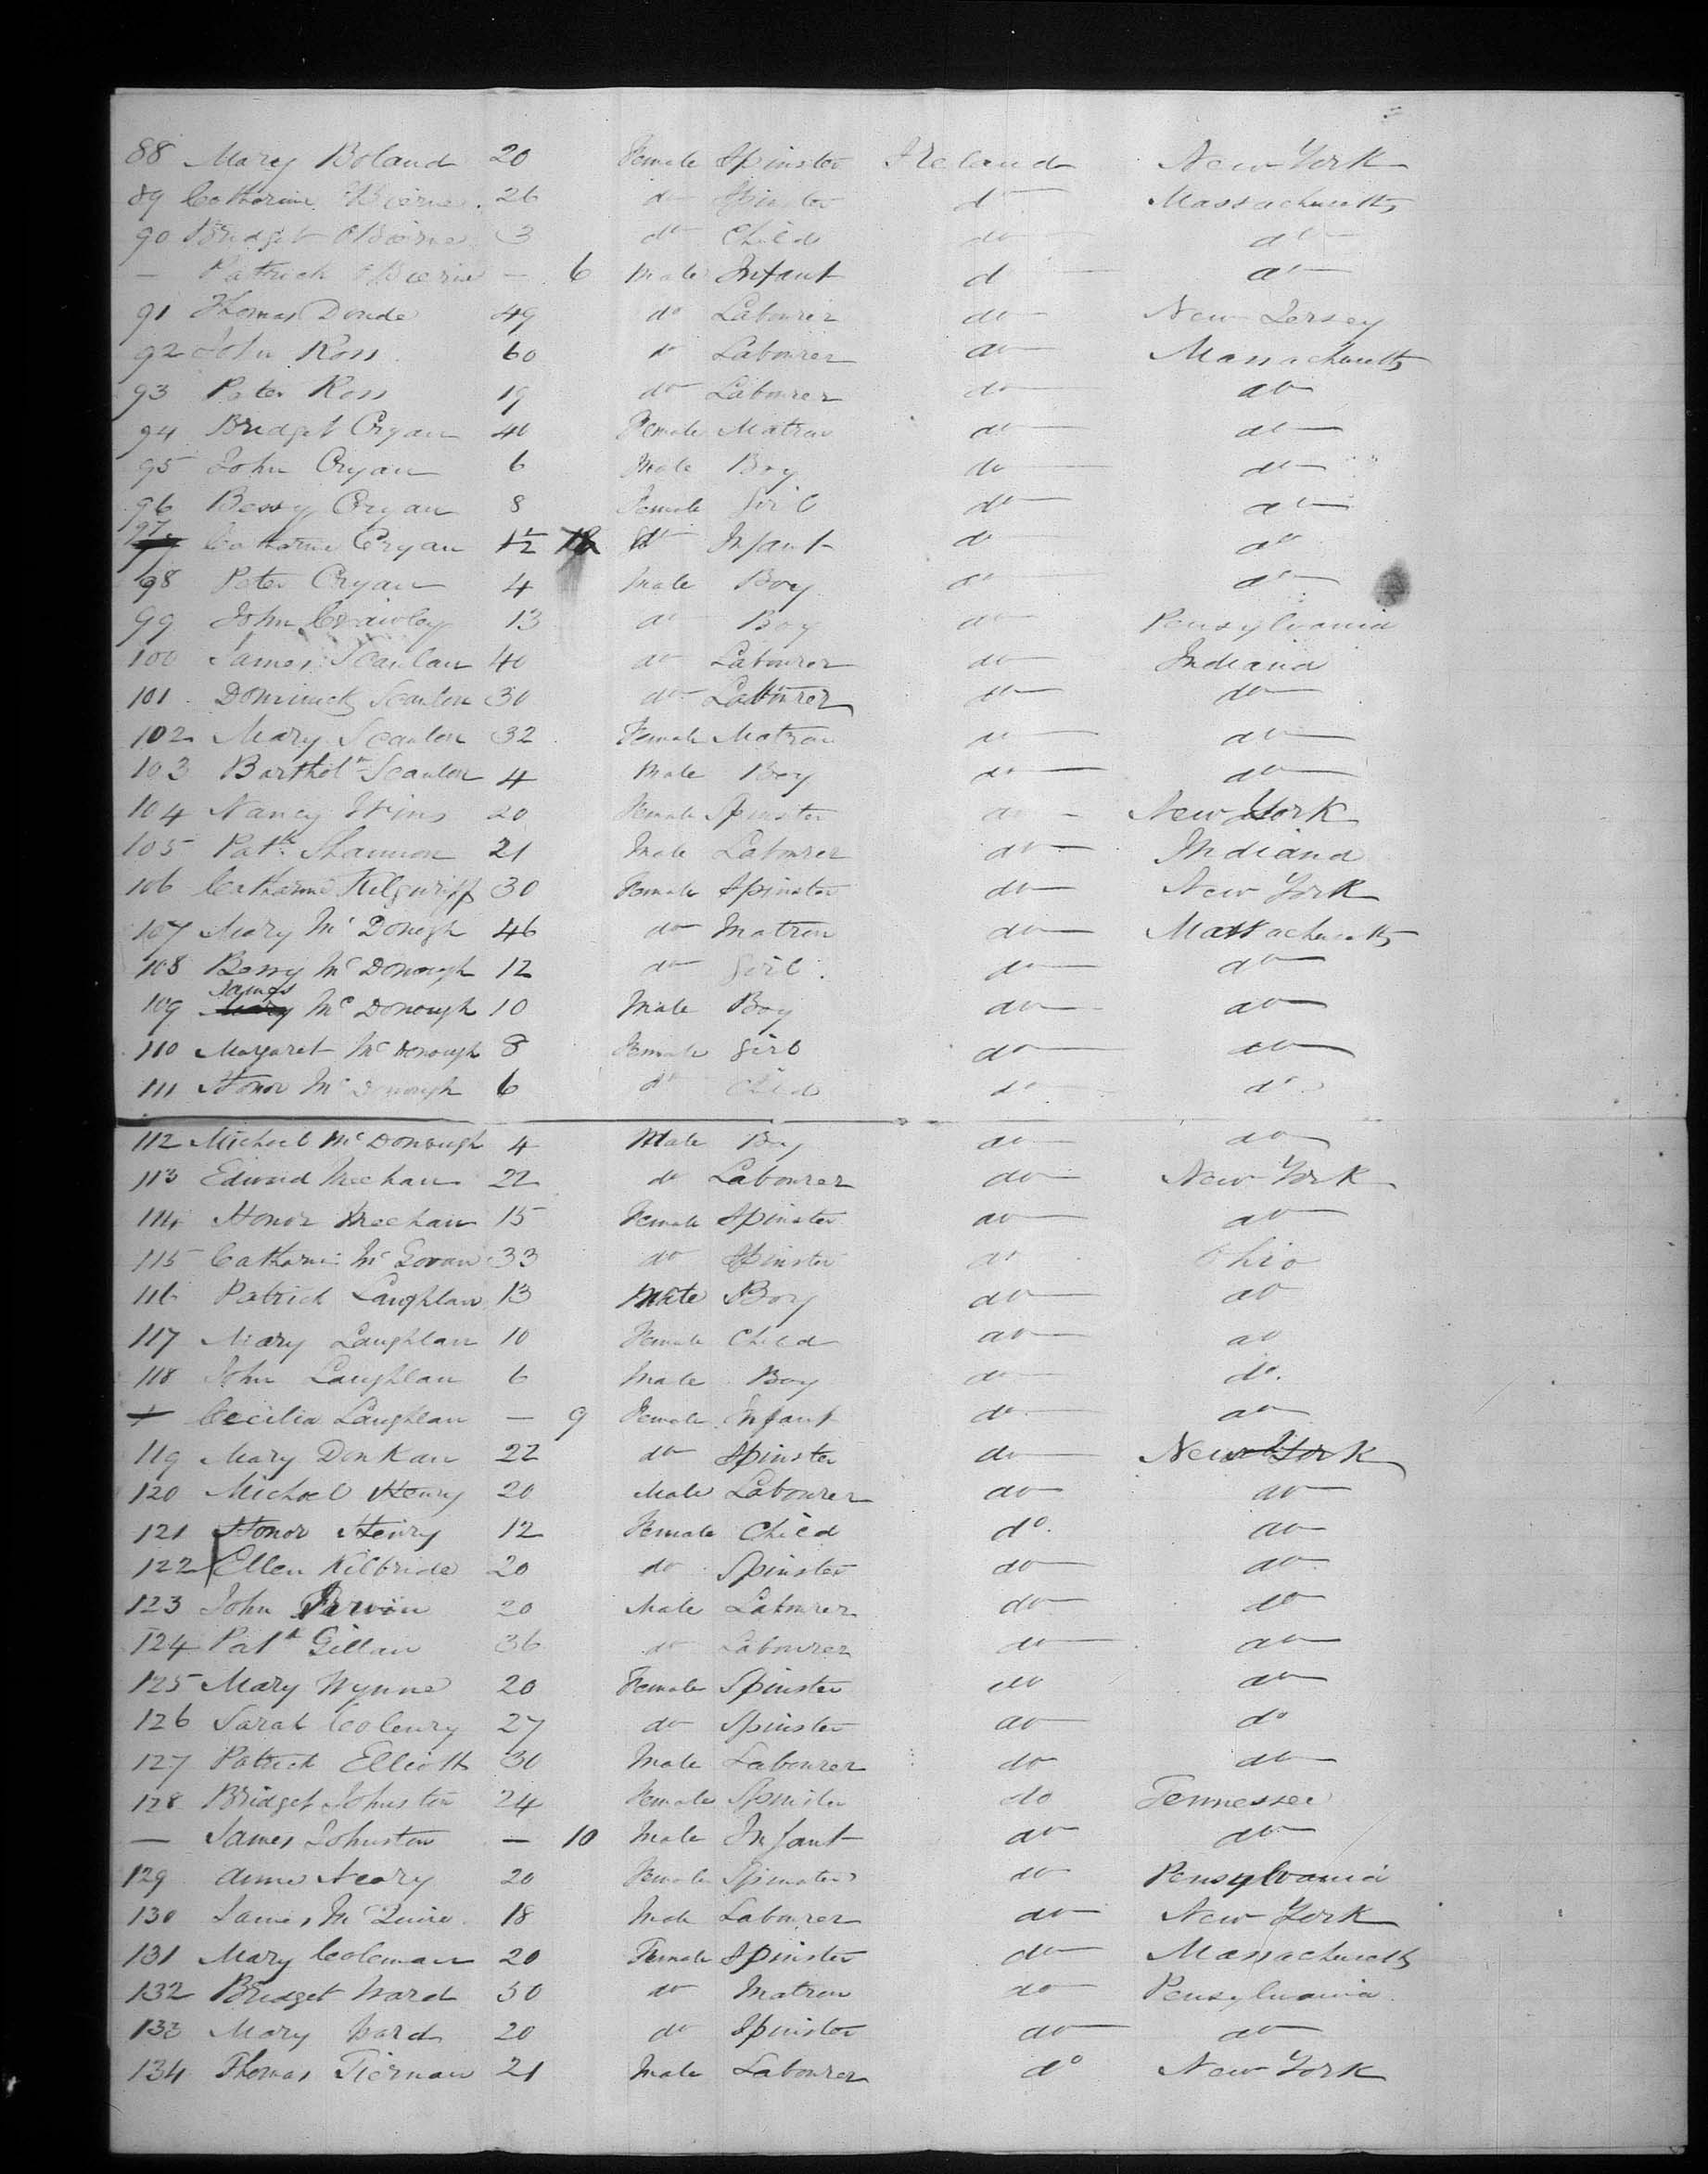 88 Mary Boland 20 Female Spinster Ireland New York
89 Catharine OBierne 26 do Spinster do Massachusetts
90 Bridget OBierne 3 do Child do do
— Patrick OBierne — 6 Male Infant do do
91 Thomas Donde 49 do Labourer do New Jersey
92 John Ross 60 do Labourer do Massachusetts
93 Peter Ross 19 do Labourer do do
94 Bridget Cryan 40 Female Matron do do
95 John Cryan 6 Male Boy do do
96 Bessy Cryan 8 Female Girl do do
97 Catharine Cryan 1½ do Infant do do
98 Peter Cryan 4 Male Boy do do
99 John Crawley 13 do Boy do Pensylvania
100 James Scanlan 40 do Labourer do Indiana
101 Dominick Scanlon 30 do Labourer do do
102 Mary Scanlon 32 Female Matron do do
103 Barthol^w Scanlon 4 Male Boy do do
104 Nancy 20 Female Spinster do New York
105 Patk Shannon 21 Male Labourer do Indiana
106 Catharine Kilguriff 30 Female Spinster do New York
107 Mary Mc Donogh 46 do Matron do Massachusetts
108 Bessy Mc Donough 12 do Girl do do
109 James Mc Donough 10 Male Boy do do
110 Margaret Mc Donough 8 Female Girl do do
111 Honor Mc Donough 6 do Child do do
112 Michael Mc Donough 4 Male Boy do do
113 Edmund Meehan 22 do Labourer do New York
114 Honor Meehan 15 Female Spinster do do
115 Catharine Mc Govan 33 do Spinster do Ohio
116 Patrick Laughlan 13 Male Boy do do
117 Mary Laughlan 10 Female Child do do
118 John Laughlan 6 Male Boy do do
Cecilia Laughlan — 9 Female Infant do do
119 Mary Donkan 22 do Spinster do New York
120 Michael Henry 20 Male Labourer do do
121 Honor Henry 12 Female Child do do
122 Ellen Kilbride 20 do Spinster do do
123 John 20 Male Labourer do do
124 Patk Gillan 36 do Labourer do do
125 Mary Wynne 20 Female Spinster do do
126 Sarah Colenry 27 do Spinster do do
127 Patrick Elliott 30 Male Labourer do do
128 Bridget Johnston 24 Female Spinster do Tennessee
— James Johnston — 10 Male Infant do do
129 Anne Neary 20 Female Spinster do Pensylvania
130 James McQuire 18 Male Labourer do New York
131 Mary Coleman 20 Female Spinster do Massachusetts
132 Bridget Ward 50 do Matron do Pensylvania
133 Mary Ward 20 do Spinster do do
134 Thomas Tiernan 21 Male Labourer do New York